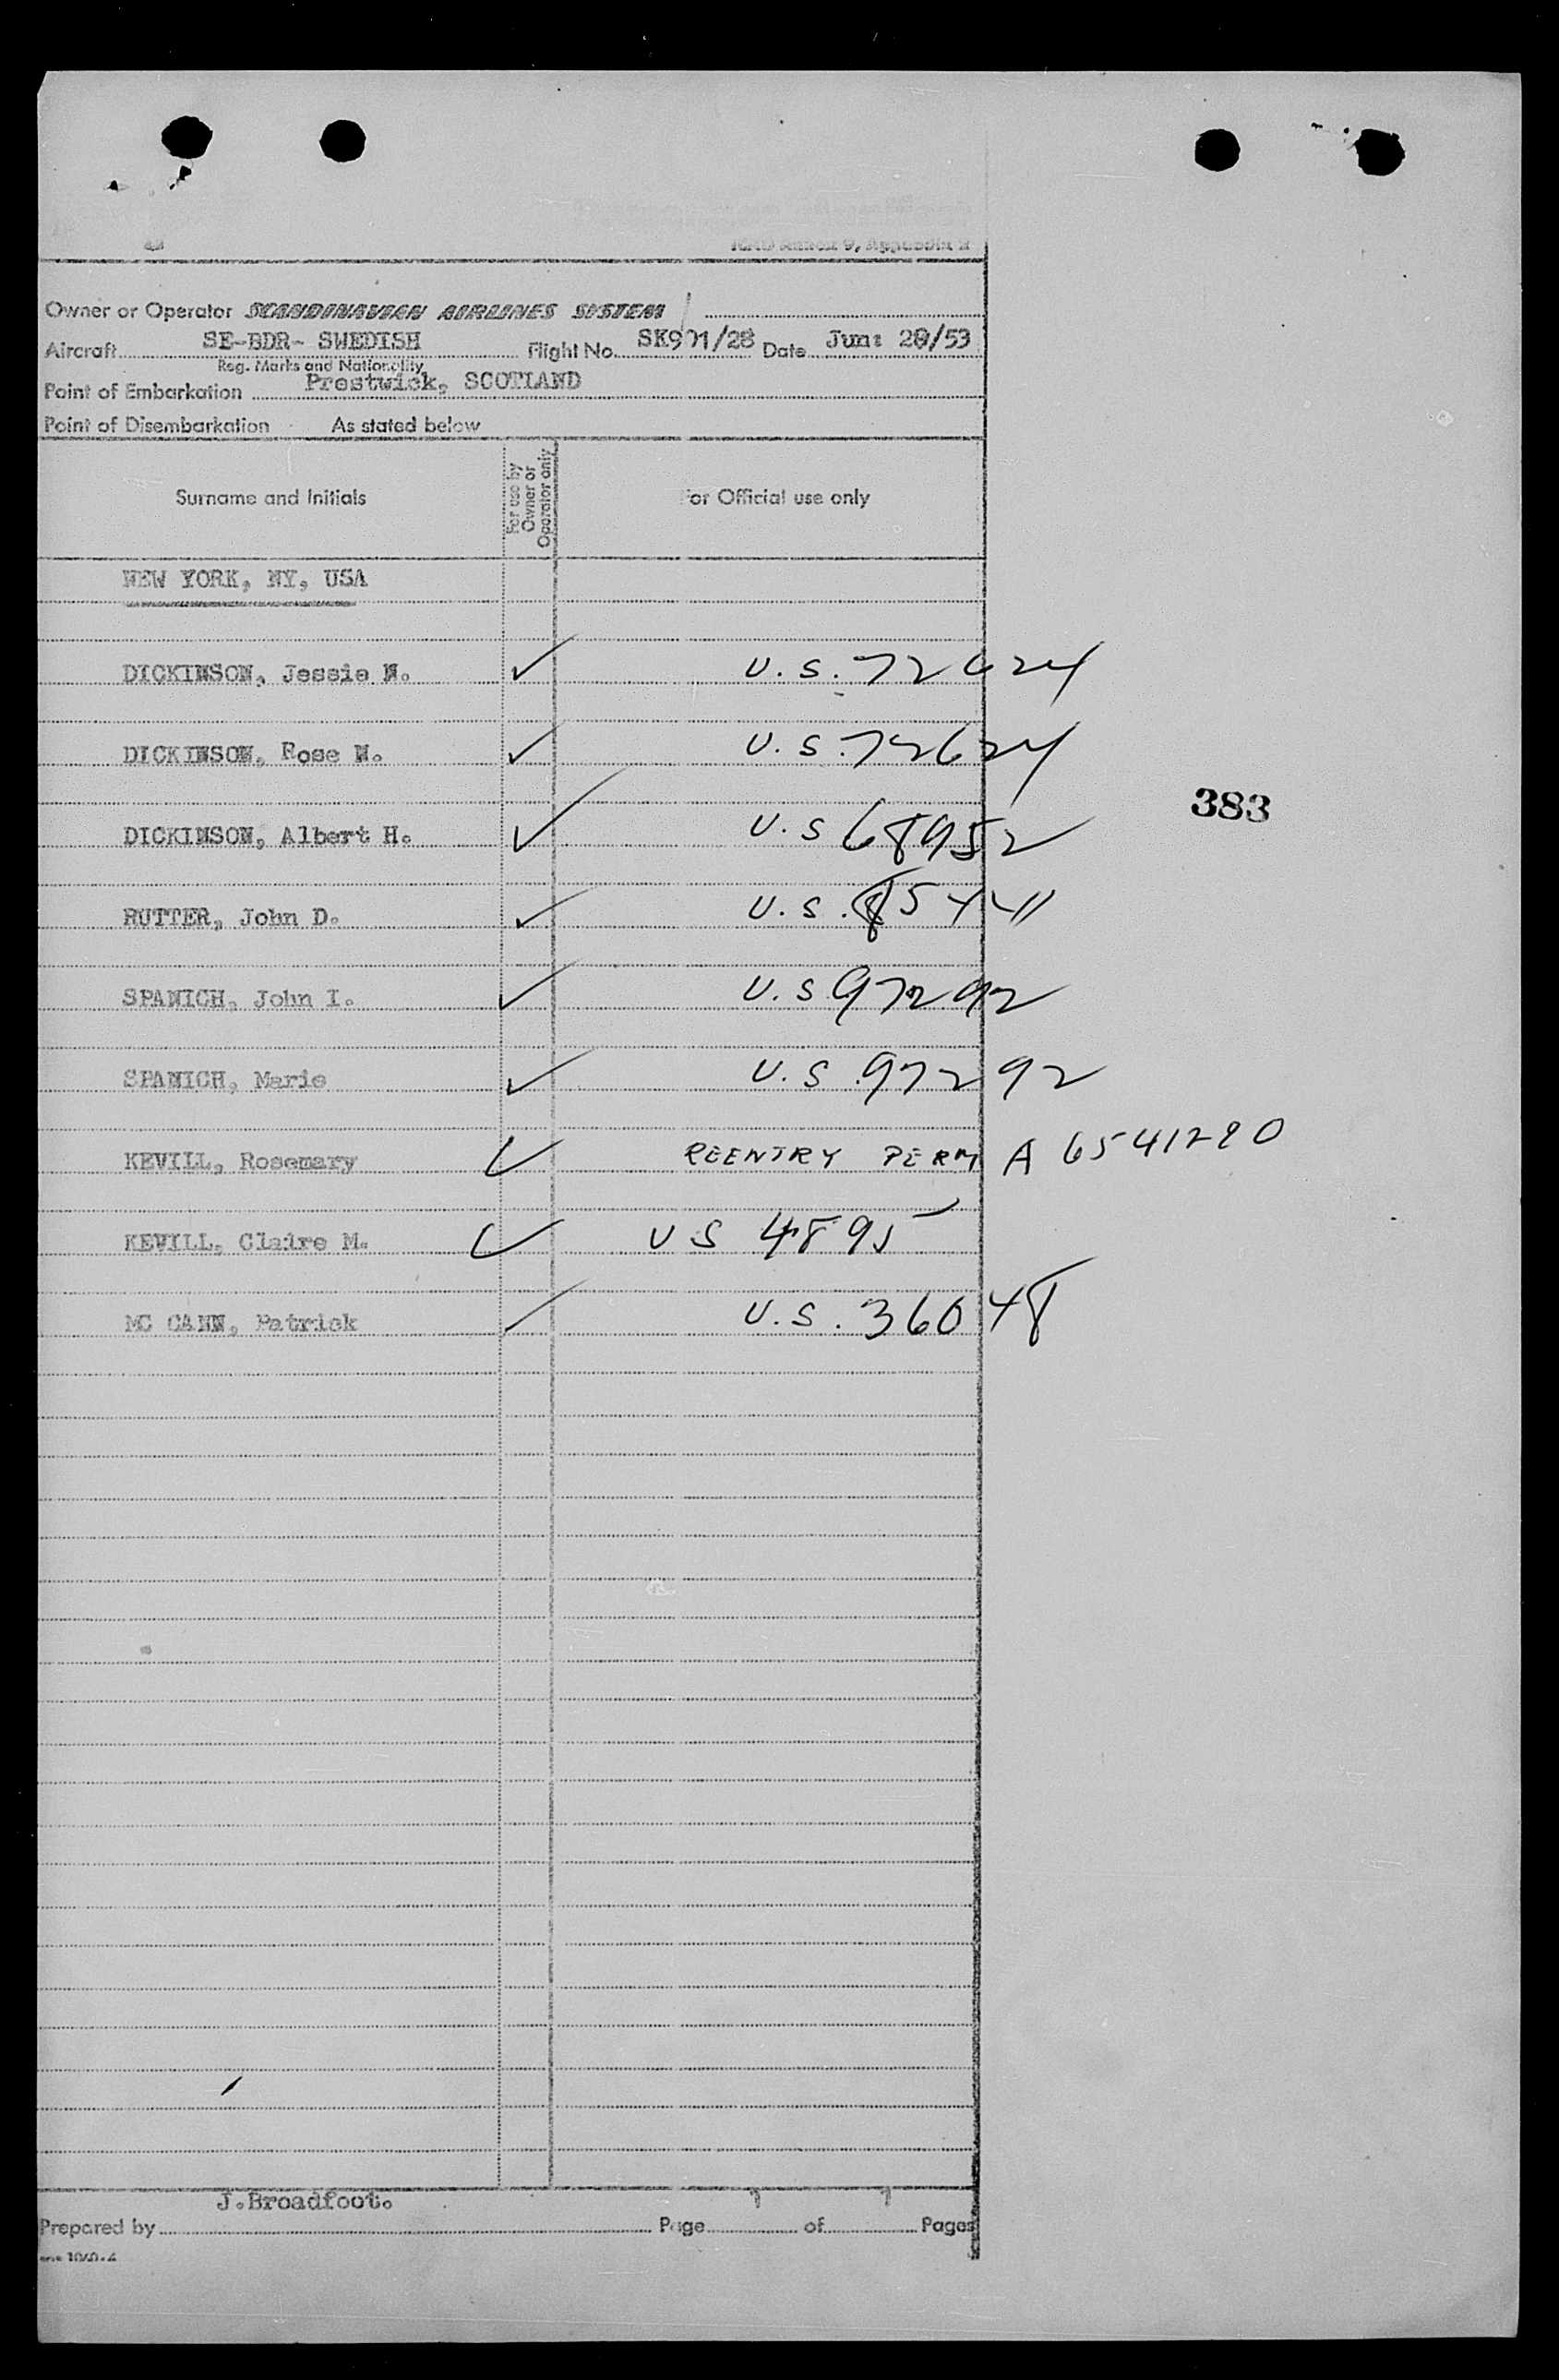 ICAO Annex 9, Appendix 2
Owner or Operator SCANDINAVIAN AIRLINES SYSTEM
Aircraft SE-BDR- SWEDISH Flight No. SK901/28 Date Jun: 28/53
Reg. Marks and Nationality
Point of Embarkation Prestwick, SCOTLAND
Point of Disembarkation As stated below
Surname and Initials
For use by Owner or Operator only
For Official use only
NEW YORK, NY, USA
DICKINSON, Jessie N. ✓ U.S. 72624
DICKINSON, Rose N. ✓ U.S. 72624
DICKINSON, Albert H. ✓ U.S 68952
383
RUTTER, John D. ✓ U.S.
SPANICH, John I. ✓ U.S 97292
SPANICH, Marie ✓ U.S. 97292
KEVILL, Rosemary ✓ REENTRY PERM A 6541290
KEVILL, Claire M. ✓ US 4895
MC CANN, Patrick ✓ U.S. 36048
J.Broadfoot.
Prepared by Page 1 of 1 Pages